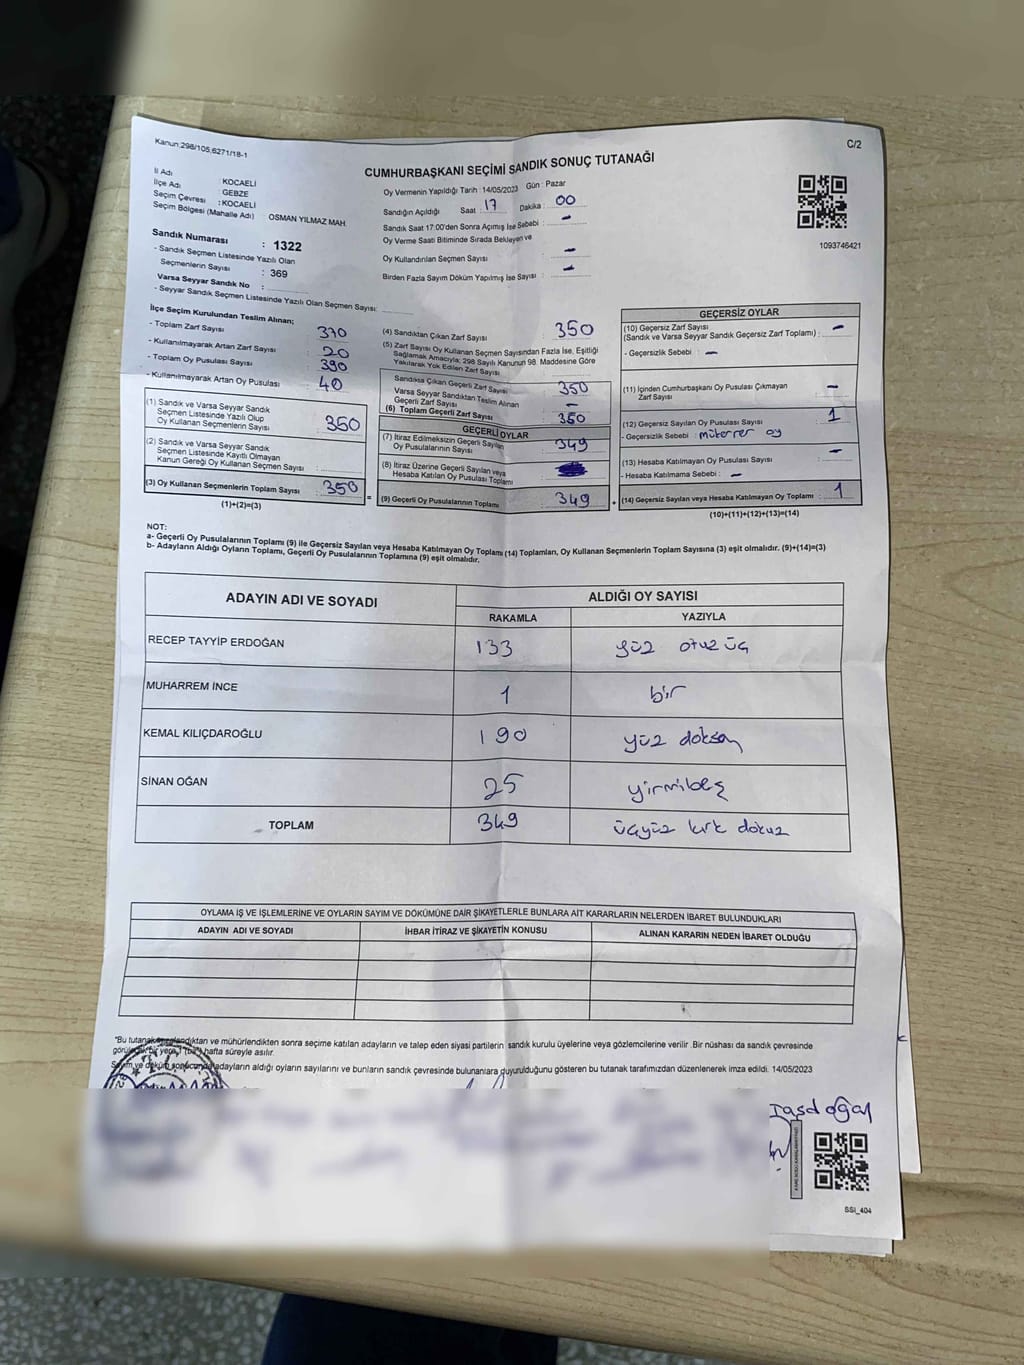 Kanun:298/105,6271/18-1
C/2
CUMHURBAŞKANI SEÇİMİ SANDIK SONUÇ TUTANAĞI
İl Adı : KOCAELİ
İlçe Adı : GEBZE
Seçim Çevresi : KOCAELİ
Seçim Bölgesi (Mahalle Adı) OSMAN YILMAZ MAH.
Sandık Numarası : 1322
- Sandık Seçmen Listesinde Yazılı Olan
Seçmenlerin Sayısı : 369
Varsa Seyyar Sandık No :
- Seyyar Sandık Seçmen Listesinde Yazılı Olan Seçmen Sayısı:
Oy Vermenin Yapıldığı Tarih : 14/05/2023 Gün : Pazar
Sandığın Açıldığı Saat : 17 Dakika : 00
Sandık Saat 17:00'den Sonra Açımış İse Sebebi : -
Oy Verme Saati Bitiminde Sırada Bekleyen ve
Oy Kullandırılan Seçmen Sayısı : -
Birden Fazla Sayım Döküm Yapılmış İse Sayısı : -
1093746421
İlçe Seçim Kurulundan Teslim Alınan;
- Toplam Zarf Sayısı : 370
- Kullanılmayarak Artan Zarf Sayısı : 20
- Toplam Oy Pusulası Sayısı : 390
- Kullanılmayarak Artan Oy Pusulası : 40
(1) Sandık ve Varsa Seyyar Sandık
Seçmen Listesinde Yazılı Olup
Oy Kullanan Seçmenlerin Sayısı : 350
(2) Sandık ve Varsa Seyyar Sandık
Seçmen Listesinde Kayıtlı Olmayan
Kanun Gereği Oy Kullanan Seçmen Sayısı :
(3) Oy Kullanan Seçmenlerin Toplam Sayısı : 350
(1)+(2)=(3)
=
(4) Sandıktan Çıkan Zarf Sayısı : 350
(5) Zarf Sayısı Oy Kullanan Seçmen Sayısından Fazla İse, Eşitliği
Sağlamak Amacıyla; 298 Sayılı Kanunun 98. Maddesine Göre
Yakılarak Yok Edilen Zarf Sayısı :
Sandıksa Çıkan Geçerli Zarf Sayısı : 350
Varsa Seyyar Sandıktan Teslim Alınan
Geçerli Zarf Sayısı : -
(6) Toplam Geçerli Zarf Sayısı : 350
GEÇERLİ OYLAR
(7) İtiraz Edilmeksizin Geçerli Sayılan
Oy Pusulalarının Sayısı : 349
(8) İtiraz Üzerine Geçerli Sayılan veya
Hesaba Katılan Oy Pusulası Toplamı :
(9) Geçerli Oy Pusulalarının Toplamı : 349
+
GEÇERSİZ OYLAR
(10) Geçersiz Zarf Sayısı
(Sandık ve Varsa Seyyar Sandık Geçersiz Zarf Toplamı) : -
- Geçersizlik Sebebi : -
(11) İçinden Cumhurbaşkanı Oy Pusulası Çıkmayan
Zarf Sayısı : -
(12) Geçersiz Sayılan Oy Pusulası Sayısı : 1
- Geçersizlik Sebebi : müterrer oy
(13) Hesaba Katılmayan Oy Pusulası Sayısı : -
- Hesaba Katılmama Sebebi : -
(14) Geçersiz Sayılan veya Hesaba Katılmayan Oy Toplamı : 1
(10)+(11)+(12)+(13)=(14)
NOT:
a- Geçerli Oy Pusulalarının Toplamı (9) ile Geçersiz Sayılan veya Hesaba Katılmayan Oy Toplamı (14) Toplamları, Oy Kullanan Seçmenlerin Toplam Sayısına (3) eşit olmalıdır. (9)+(14)=(3)
b- Adayların Aldığı Oyların Toplamı, Geçerli Oy Pusulalarının Toplamına (9) eşit olmalıdır.
ADAYIN ADI VE SOYADI ALDIĞI OY SAYISI
RAKAMLA YAZIYLA
RECEP TAYYİP ERDOĞAN 133 yüz otuz üç
MUHARREM İNCE 1 bir
KEMAL KILIÇDAROĞLU 190 yüz doksan
SİNAN OĞAN 25 yirmibeş
TOPLAM 349 üçyüz kırk dokuz
OYLAMA İŞ VE İŞLEMLERİNE VE OYLARIN SAYIM VE DÖKÜMÜNE DAİR ŞİKAYETLERLE BUNLARA AİT KARARLARIN NELERDEN İBARET BULUNDUKLARI
ADAYIN ADI VE SOYADI İHBAR İTİRAZ VE ŞİKAYETİN KONUSU ALINAN KARARIN NEDEN İBARET OLDUĞU
"Bu tutanak imzalandıktan ve mühürlendikten sonra seçime katılan adayların ve talep eden siyasi partilerin sandık kurulu üyelerine veya gözlemcilerine verilir .Bir nüshası da sandık çevresinde
görülebilir bir yere 1 (bir) hafta süreyle asılır.
Sayım ve döküm sonucunda adayların aldığı oyların sayılarını ve bunların sandık çevresinde bulunanlara duyurulduğunu gösteren bu tutanak tarafımızdan düzenlenerek imza edildi. 14/05/2023
Taşdoğan
SSİ_404